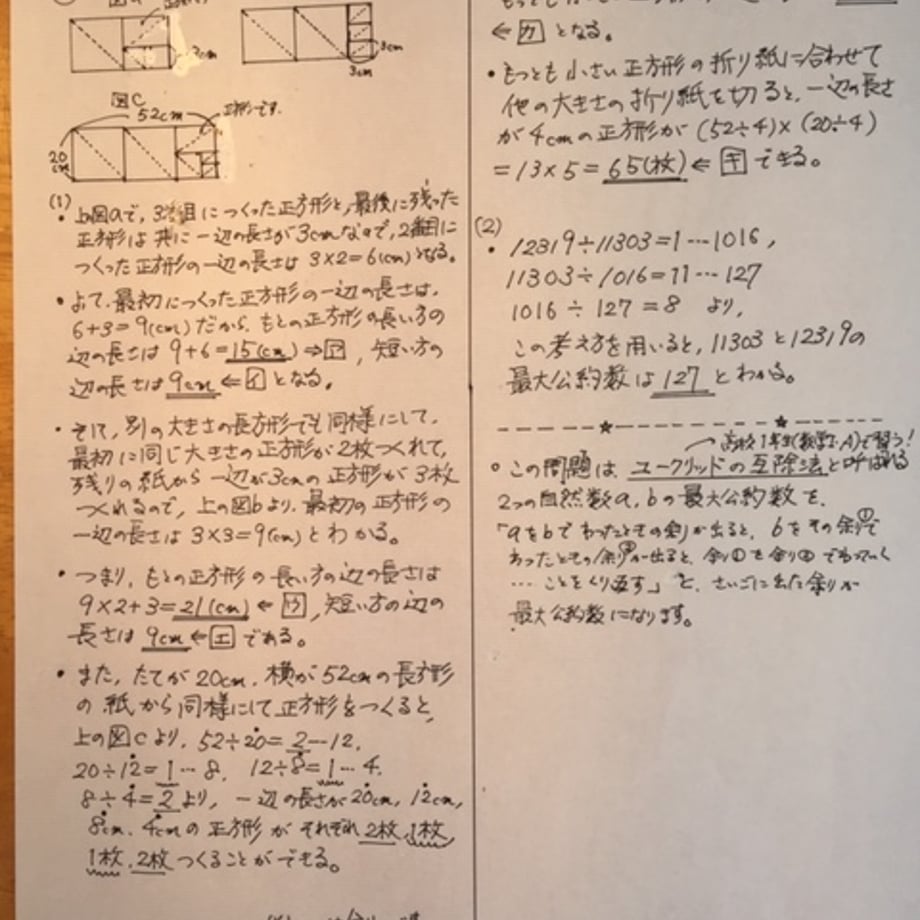 図a
3cm
3cm
3cm
図C
52cm
正方形です。
20
cm
(1)
・上図aで、3番目につくった正方形と、最後に残った
正方形は共に一辺の長さが3cmなので、2番目に
つくった正方形の一辺の長さは 3×2=6(cm)となる。
・よって、最初につくった正方形の一辺の長さは、
6+3=9(cm)だから、もとの正方形の長い方の
辺の長さは 9+6=15(cm)⇒ア, 短い方の
辺の長さは 9cm ←イ となる。
・そして、別の大きさの長方形でも同様にして、
最初に同じ大きさの正方形が2枚つくれて、
残りの紙から一辺が3cmの正方形が3枚
つくれるので、上の図bより、最初の正方形の
一辺の長さは 3×3=9(cm)とわかる。
・つまり、もとの正方形の長い方の辺の長さは
9×2+3=21(cm) ← ウ, 短い方の辺の
長さは 9cm ← エ である。
・また、たてが20cm、横が52cmの長方形
の紙から同様にして正方形をつくると、
上の図Cより、52÷20=2…12,
20÷12=1…8, 12÷8=1…4,
8÷4=2より、一辺の長さが20cm, 12cm,
8cm、4cmの正方形がそれぞれ2枚、1枚、
1枚、2枚つくることができる。
← カ となる。
・もっとも小さい正方形の折り紙に合わせて
他の大きさの折り紙を切ると、一辺の長さ
が4cmの正方形が (52÷4)×(20÷4)
=13×5=65(枚)← キ できる。
(2)
・12319÷11303=1…1016,
11303÷1016=11…127
1016÷127=8 より、
この考え方を用いると、11303と12319の
最大公約数は 127 とわかる。
高校1年生(数学I・A)で習う!
。この問題は ユークリッドの互除法と呼ばれる
2つの自然数a,bの最大公約数を、
「aをbでわったときの余り①が出ると、bをその余り①で
わったときの余り②が出ると、余り①を余り②でわっていく
… ことをくり返す」と、さいごに出た余りが
最大公約数になります。